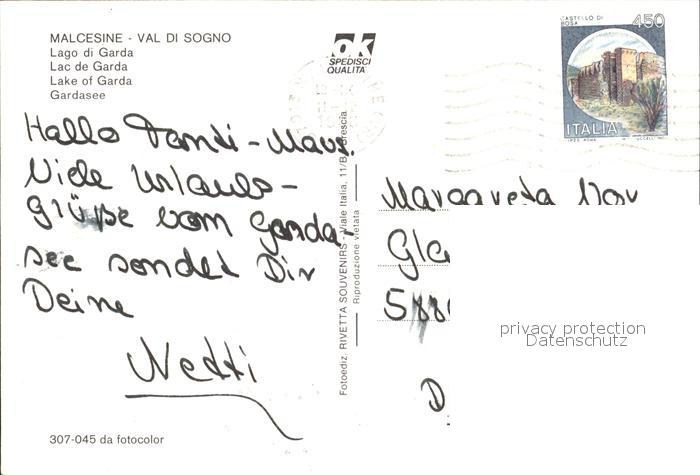 MALCESINE - VAL DI SOGNO
Lago di Garda
Lac de Garde
Lake of Garda
Gardasee
ok
SPEDISCI
QUALITA'
CASTELLO DI
BOSA
450
ITALIA
Hallo Tanti-Maus.
Viele Urlaubs-
grüße vom Garda-
see sendet Dir
Deine
Netti
Fotoediz. RIVETTA SOUVENIRS - Viale Italia, 11/B - Brescia
Riproduzione vietata
Margareta
privacy protection
Datenschutz
D
307-045 da fotocolor